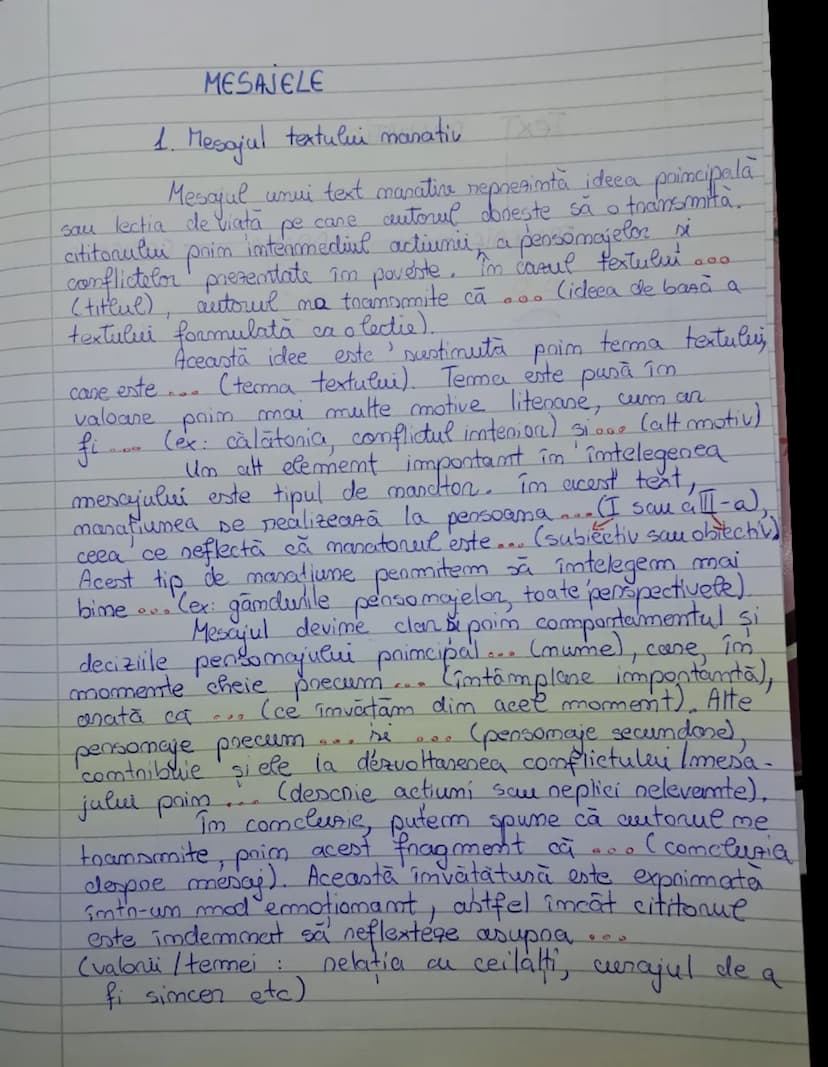 MESAJELE
1. Mesajul textului narativ
Mesajul unui text narativ reprezintă ideea principală
sau lectia de viată pe care autorul dorește să o transmită.
cititorului prin intermediul actiunii, a personajelor si
conflictelor prezentate în poveste. În cazul textului ...
(titlul), autorul na transmite că ... (ideea de bază a
textului formulată ca o lectie).
Această idee este sustinută prin tema textului,
care este ... (tema textului). Tema este pusă în
valoare prin mai multe motive literare, cum ar
fi ... (ex: călătoria, conflictul interior) si ... (alt motiv)
Un alt element important în întelegerea
mesajului este tipul de narator. În acest text,
narațiunea se realizează la persoana ... (I sau a III-a),
ceea ce reflectă că naratorul este ... (subiectiv sau obiectiv)
Acest tip de narațiune permitem să întelegem mai
bine ... (ex: gândurile personajelor, toate perspectivele)
Mesajul devine clar și prin comportamentul și
deciziile personajului principal ... (nume), care, în
momente cheie precum ... (întâmplare importantă),
arată că ... (ce învățăm din acel moment). Alte
personaje precum ... si ... (personaje secundare),
contribuie și ele la dezvoltarenea conflictului / mesa-
jului prin ... (descrie actiuni sau replici relevente).
În concluzie, putem spune că autorul ne
transmite, prin acest fragment că ... (concluzia
despre mesaj). Această învătătură este exprimată
într-un mod emoționant, astfel încât cititorul
este îndemnat să reflextege asupra ...
(valorii / temei : relația cu ceilalți, curajul de a
fi sincer etc)